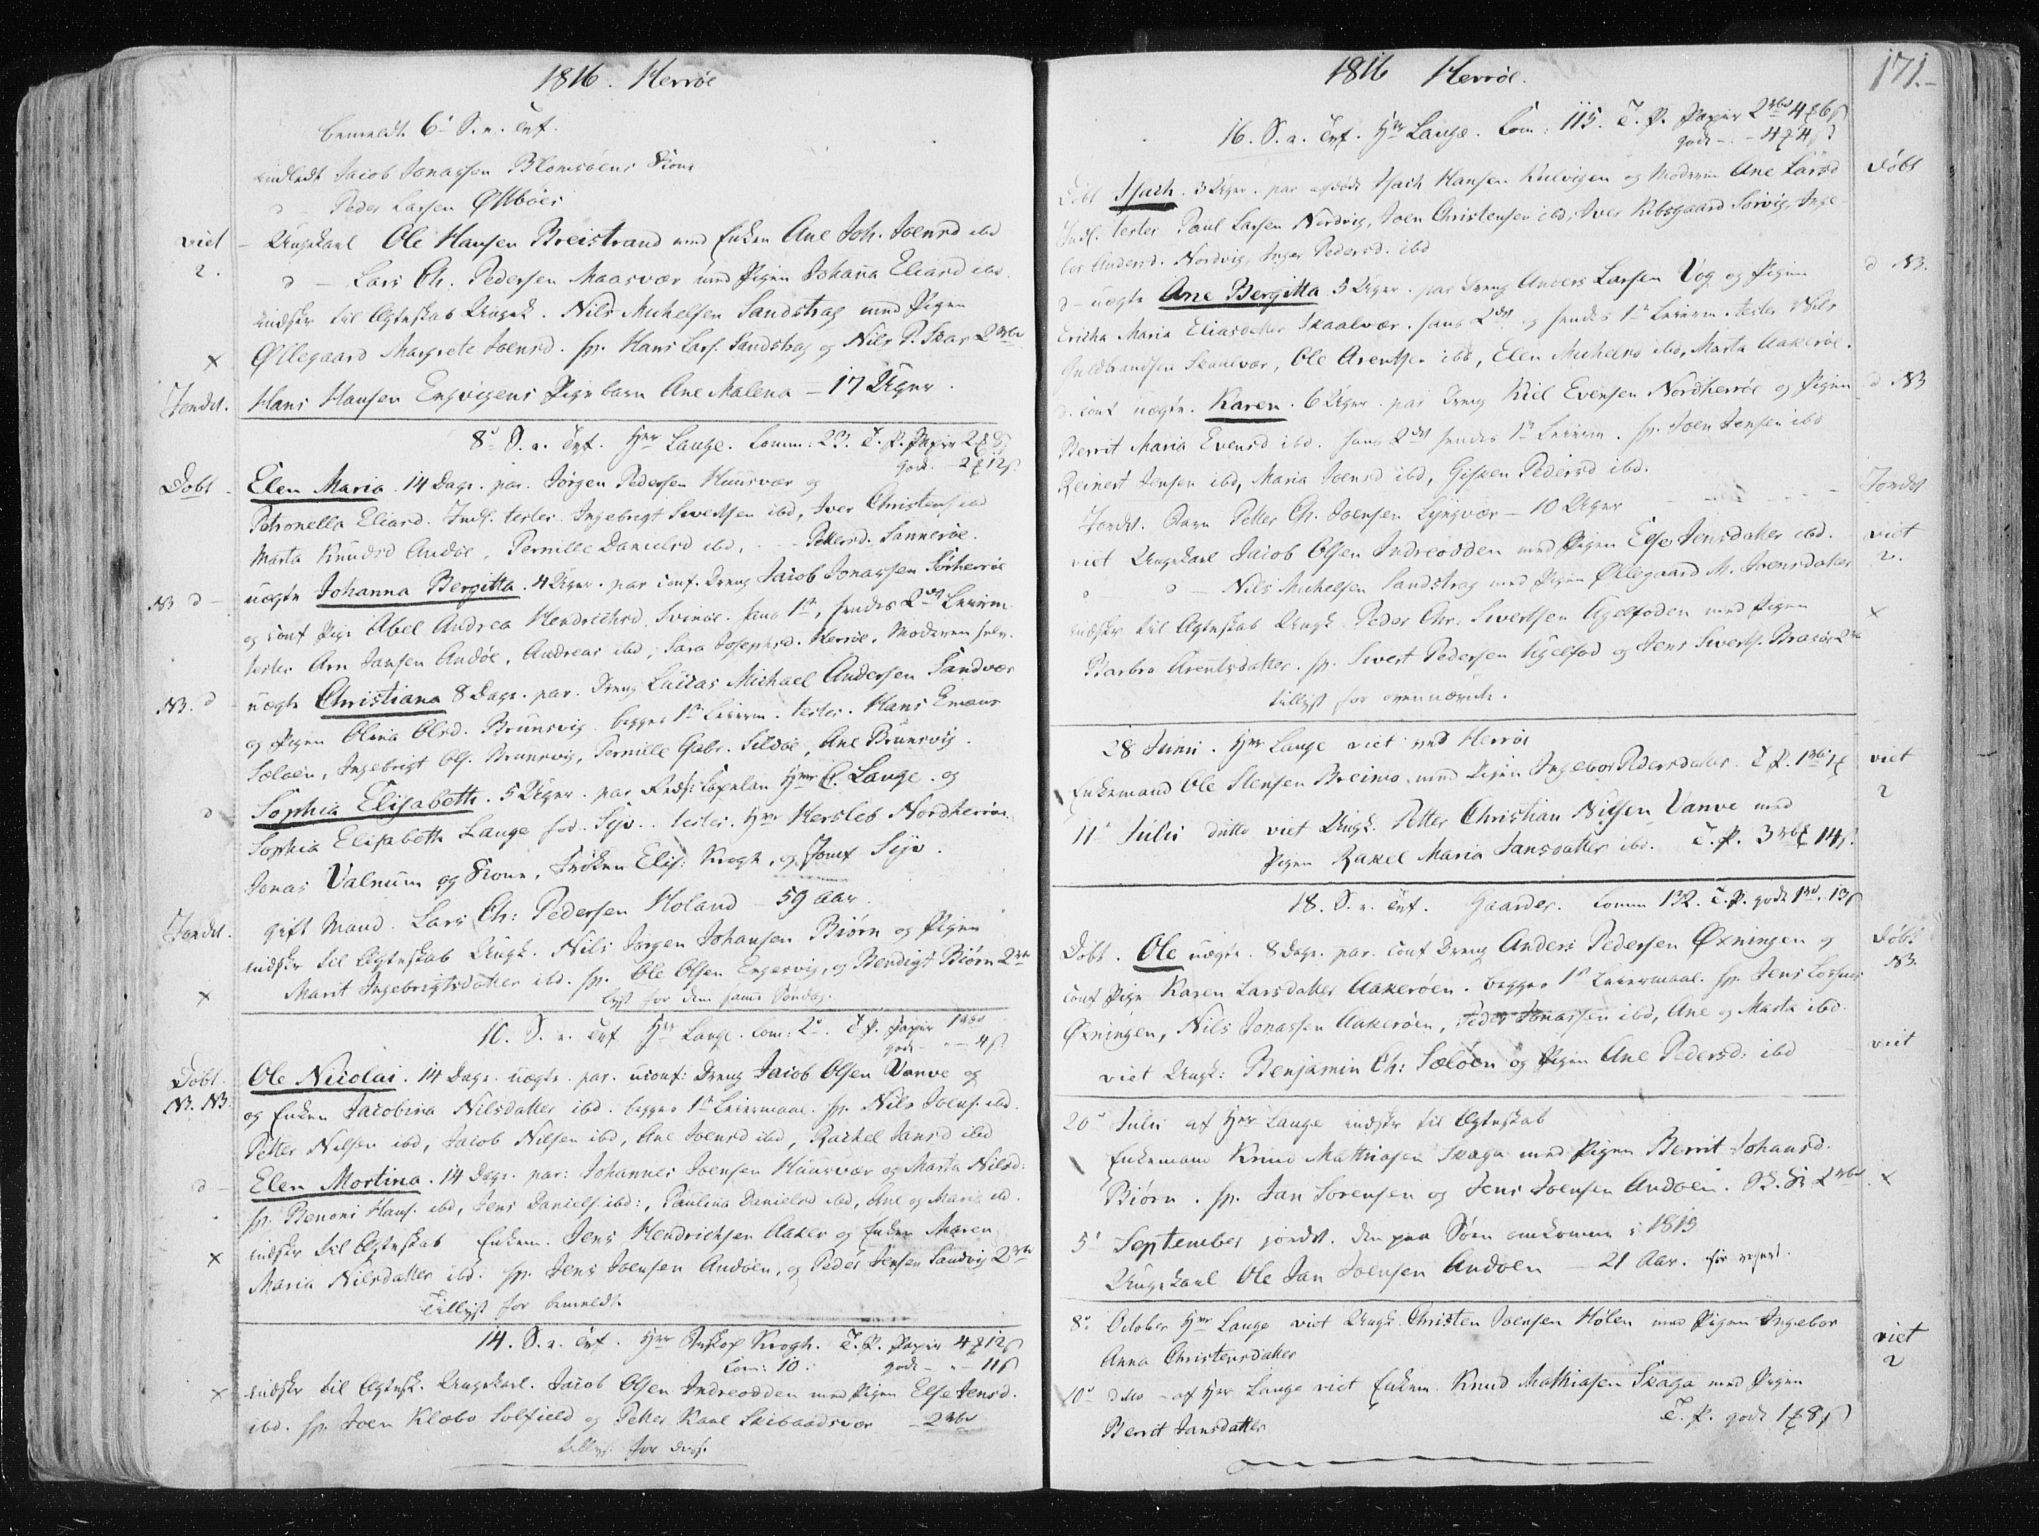 1816. Herrøe
bemeldte 6te S. e. Tref.
indledt Jacob Jonassen Blomsøens Kone
d - Peder Larsen Østbøes
viet - Ungekarl Ole Hansen Breistrand med Enken Ane Joh. Joensd ibd
2. d - Lars Ch. Pedersen Maasvær med Pigen Johanna Eliasd ibd.
indskr til Ægteskab Ungk. Nils Michelsen Sandstrag med Pigen
× Øllegaard Margrete Joensd. sp. Hans Lars. Sandstrag og Nils P. Skar 2 rbd
Jordet. Hans Hansen Engvigens Pigebarn Ane Malena - 17 Uger.
8de S. e. Tref. Hr Lange. Comm: 23. T. P. Papir 2
gode - 2 12 s.
Døbt - Elen Maria. 14 Dage. par. Jørgen Pedersen Huusvær og
Petronella Eliasd. Indl. testes Ingebrigt Sivertsen ibd, Iver Christens ibd
Marta Knudsd Andøe, Pernille Danielsd ibd, - Pettersd. Sannerøe.
NB d - uægte Johanna Bergitta. 4 Uger. par conf. Dreng Jacob Jonassen Sørherrøe
og conf Pige Abel Andrea Hendrichsd. Svinøe. hans 1te, hendes 2det Leierm.
testes Arn Jansen Andøe, Andreas ibd, Sara Josephsd. Herrøe. Moderen selv.
NB. d - uægte Christiana 8 Dage. par. Dreng Lucas Michael Andersen Sandvær
og Pigen Olina Olsd. Brunsvig. begges 1te Leierm. testes. Hans Emaus
Sæløen, Ingebrigt Ols. Brunsvig, Pernille Gabr. Sildøe, Ane Brunsvig.
d Sophia Elisabeth. 5 Uger. par Resd: Capelan Hr C. Lange. og
Sophia Elisabeth Lange fød. Sejv. testes. Hr Hersleb Nordherrøe
Jonas Valnum og Kone. Frøken Elis: Krogh, og Jomf Sejv.
Jordet. gift Mand. Lars Ch: Pedersen Holand - 59 Aar.
indskr til Ægteskab Ungk. Nils Jørgen Johansen Biørn og Pigen
× Marit Ingebrigtsdatter ibd. sp. Ole Olsen Engesvig, og Bendigt Biørn 2 rbd
lyst for dem samme Søndag.
10. S. e. Tref Hr Lange. Com: 2. T. P. Papir 1 rbd
gode - - 4 s.
Døbt. Ole Nicolai. 14 Dage. uægte. par. uconf: Dreng Jacob Olsen Vanve og
NB. NB. og Enken Jacobina Nilsdatter ibd. begges 1te Leiermaal. sp. Nils Joens. ibd.
Petter Nilsen ibd, Jacob Nilsen ibd, Ane Joensd ibd, Rachel Jansd ibd
d - Elen Mortina. 14 Dage. par: Johannes Joensen Huusvær og Marta Nilsd:
sp. Benoni Hans. ibd, Jens Daniels. ibd:, Paulina Danielsd ibd, Ane og Maria ibd.
× indskr til Ægteskab Enkem. Jens Hendrichsen Aaker og Enken Maren
Maria Nilsdatter ibd. sp. Jens Joensen Andøen, og Peder Jensen Sandvig 2 rbd
Tillyst for bemeldte
14. S. e. Tref. Hr Biskop Krogh. T. P. Papir 4 12 s
Com: 10. gode - - 11 s
× indskr til Ægtesk. Ungekarl. Jacob Olsen Indreodden med Pigen Else Jensd.
ibd. sp. Joen Klæbo Solfield og Petter Karl Skibaadsvær - 2 rbd
tillyst for disse.
1816 Herrøe.
171.
16. S. e. Tref. Hr Lange. Com: 115. T. P. Papir 2 rbd 4 6 s
gode - - 4 4 s
Døbt Isach. 3 Uger. par afdøde Isach Hansen Kulvigen og Moderen Ane Larsd
Døbt
Indl. testes Paul Larsen Nordvig, Joen Christensen ibd, Iver Ribsgaard Sørvig, Inge-
bor Andersd. Nordvig, Inger Pedersd. ibd
d - uægte Ane Bergitta 5 Uger. par Dreng Anders Larsen Vog og Pigen
d NB.
Ericha Maria Eliasdatter Skaalvær. hans 2det og hendes 1te Leierm. testes Nils
Guldbrandsen Skaalvær, Ole Arentsen ibd, Elen Michelsd ibd, Marta Aakerøe.
d. conf uægte. Karen. 6 Uger. par Dreng Kiel Evensen Nordherrøe og Pigen
d NB
Berrit Maria Evensd ibd. hans 2det hendes 1te Leierm. sp. Joen Jensen ibd
Reinert Jensen ibd, Maria Joensd ibd, Gisken Pedersd ibd.
Jordet. Barn Petter Ch. Joensen Lyngvær - 10 Uger
Jordet
viet Ungekarl Jacob Olsen Indreodden med Pigen Else Jensdatter ibd.
viet
2.
d - Nils Michelsen Sandstrag med Pigen Øllegaard M. Joensdatter
indskr til Ægteskab Ungk. Peder Chr. Sivertsen Igelfoden med Pigen
×
Barbro Arentsdatter. sp. Sivert Pedersen Igelfod og Jens Siverts. Brasøe 2 rbd
tillyst for ovennævnte.
28 Junii. Hr Lange viet ved Herrøe
Enkemand Ole Stensen Breimo med Pigen Ingebor Pedersdatter. T. P. 1 rbd
viet
2
11te Julii ditto viet Ungk. Petter Christian Nilsen Vanve med
Pigen Rakel Maria Jansdatter ibd. T. P. 3 rbd 14 s.
18. S. e. Tref. Gaarder. Comm 132. T. P. gode 1 rbd. 13 s
Døbt. Ole uægte. 8 Dage. par. conf Dreng Anders Pedersen Øxningen og
Døbt
NB.
conf Pige Karen Larsdatter Aakerøen. begges 1te Leiermaal. sp. Jens
Øxningen, Nils Jonassen Aakerøen, Peder Jonassen ibd, Ane og Marta ibd.
viet Ungk: Benjamin Ch: Sæløen og Pigen Ane Pedersd: ibd
viet
20de Julii af Hr Lange indskr til Ægteskab
Enkemand Knud Mathiasen Skaga med Pigen Berrit Johansd.
Biørn. sp. Jan Sørensen og Jens Joensen Andøen. 2 rbd.
×
5te September jordet. den paa Søen omkommen i 1813
Ungekarl Ole Jan Joensen Andøen - 21 Aar.
8de October Hr Lange viet Ungk. Christen Joensen Hølen med Pigen Ingebor
Anna Christensdatter
viet
2
10de ditto - af Hr Lange viet Enkem. Knud Mathiasen Skaga med Pigen
Berrit Jansdatter
T. P. gode 1 8 s